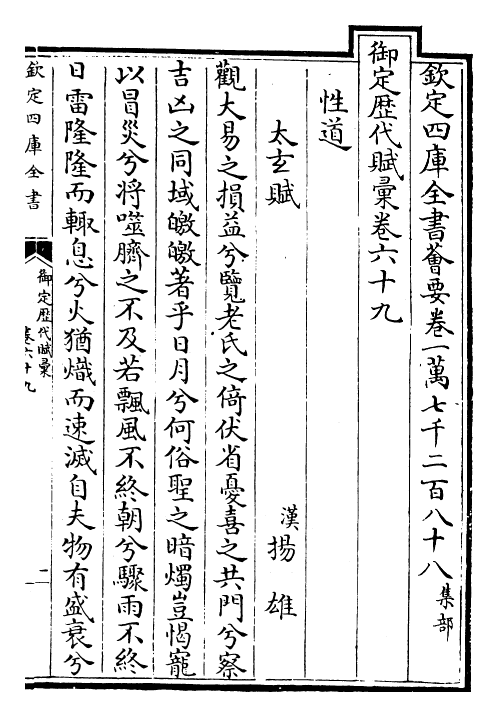 欽定四庫全書薈要卷一萬七千二百八十八 集部
御定歷代賦彙卷六十九
性道
太玄賦 漢 揚雄
觀大易之損益兮覽老氏之倚伏省憂喜之共門兮察
吉凶之同域皦皦著乎日月兮何俗聖之暗燭豈愒寵
以冒災兮將噬臍之不及若飄風不終朝兮驟雨不終
日雷隆隆而輙息兮火猶熾而速滅自夫物有盛衰兮
欽定四庫全書
御定歷代賦彙
卷六十九
二